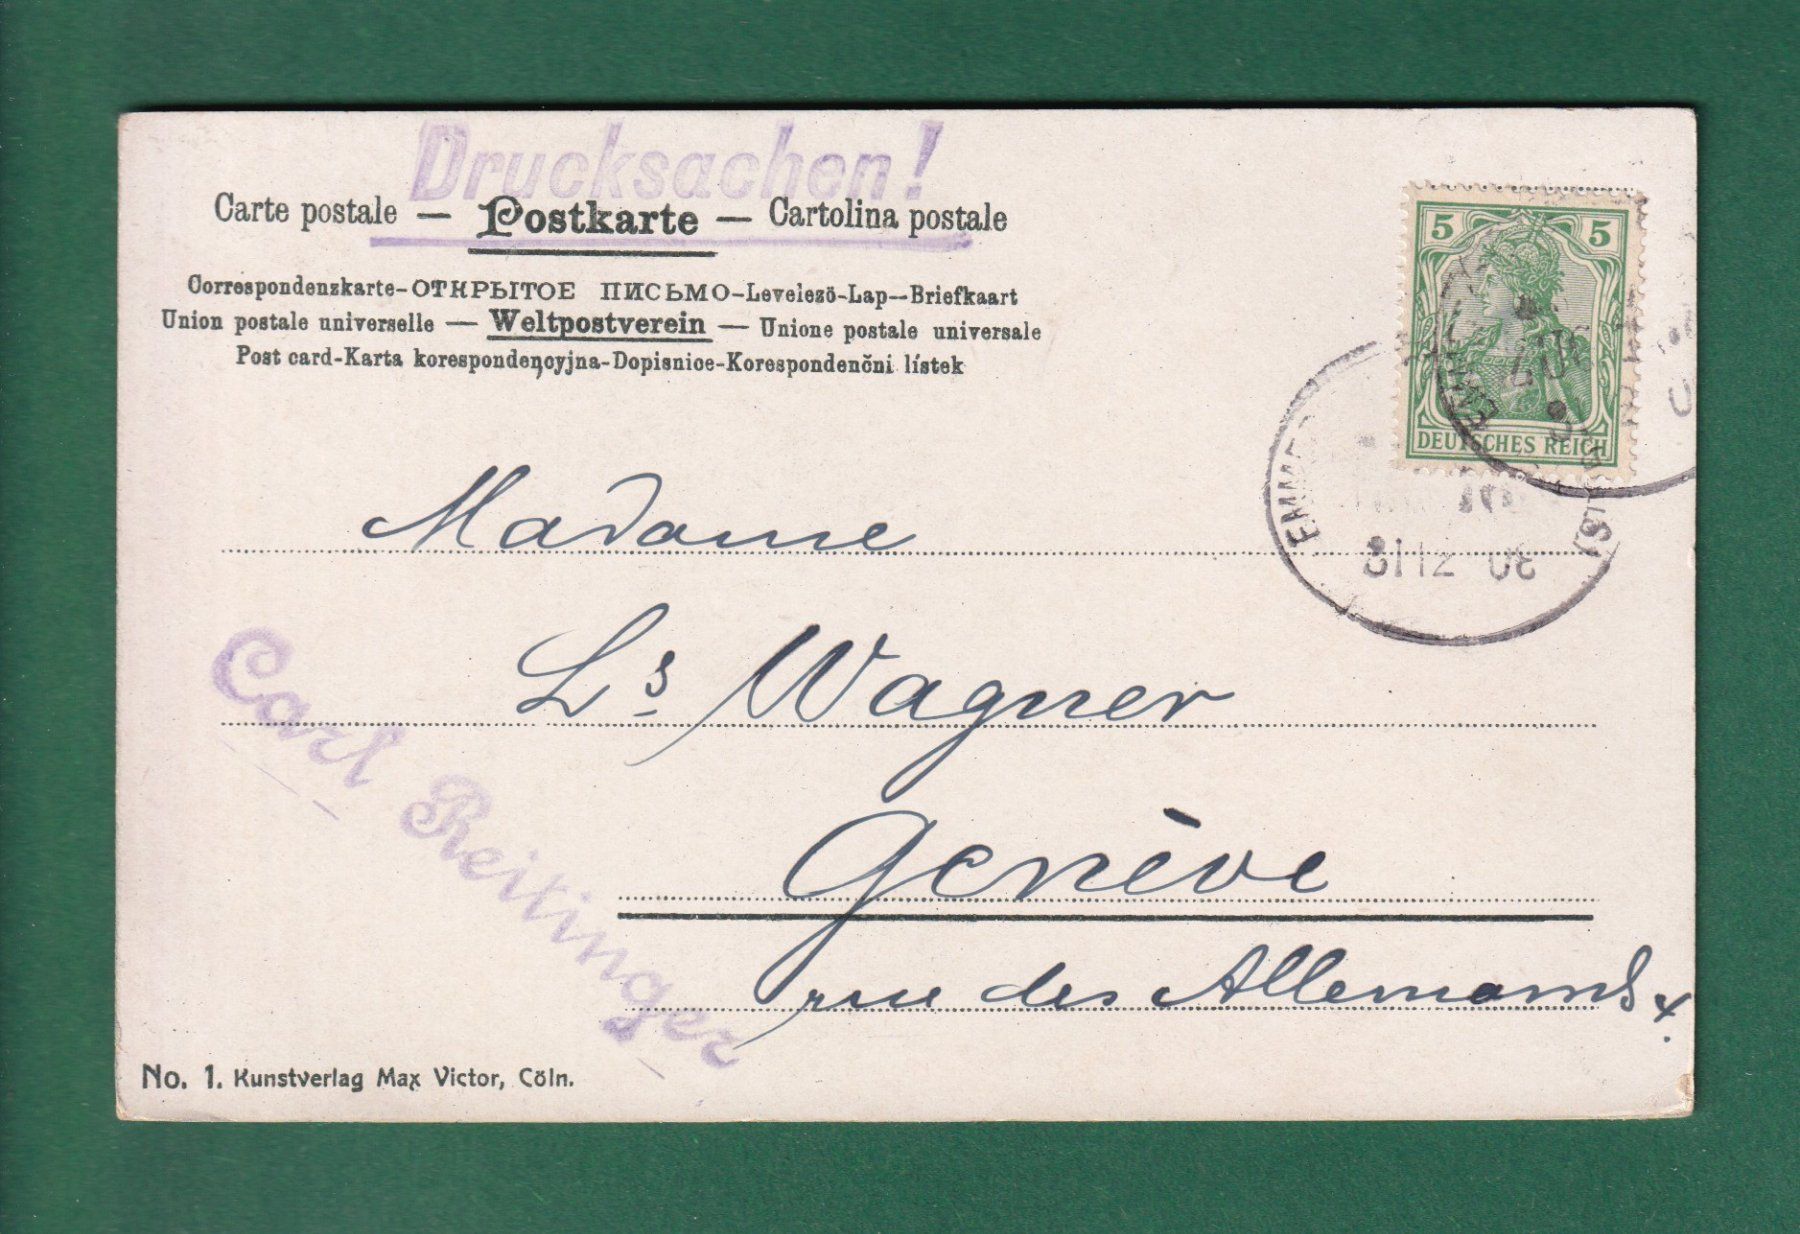 Drucksachen!
Carte postale — Postkarte — Cartolina postale
Correspondenzkarte-ОТКРЫТОЕ ПИСЬМО-Levelező-Lap--Briefkaart
Union postale universelle — Weltpostverein — Unione postale universale
Post card-Karta korespondencyjna-Dopisnice-Korespondenčni lístek
5 5
DEUTSCHES REICH
31 12 06
Madame
Ls Wagner
Genève
rue des Allemands
Carl Reitinger
No. 1. Kunstverlag Max Victor, Cöln.